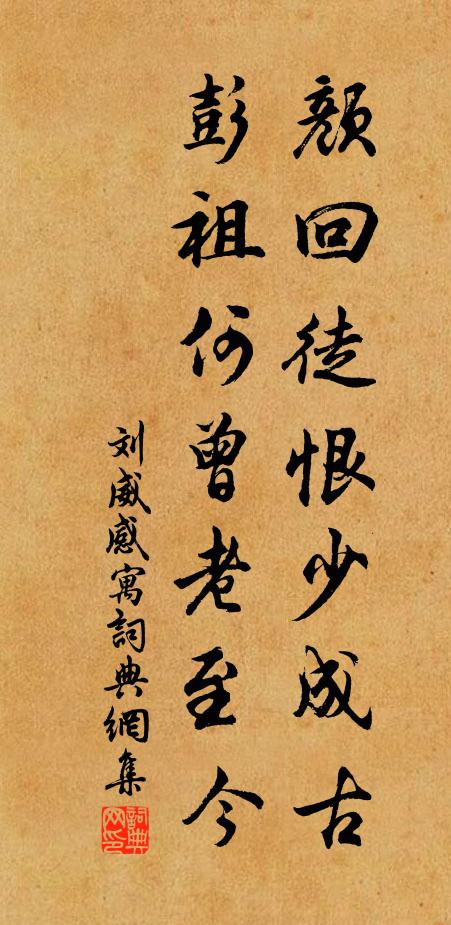 顏回徒恨少成古
彭祖何曾老至今
刘威感寓詞典網集
詞典网印